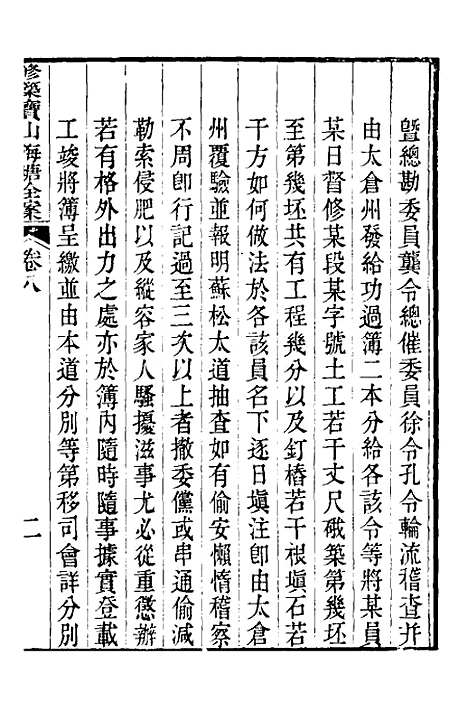 曁總勘委員龔令總催委員徐令孔令輪流稽查并
由太倉州發給功過簿二本分給各該令等將某員
某日督修某段某字號土工若干丈尺硪築第幾坯
至第幾坯共有工程幾分以及釘樁若干根塡石若
干方如何做法於各該員名下逐日塡注卽由太倉
州覆驗並報明蘇松太道抽査如有偷安懶惰稽察
不周卽行記過至三次以上者撤委儻或串通偷減
勒索侵肥以及縱容家人騷擾滋事尤必從重懲辦
若有格外出力之處亦於簿內隨時隨事據實登載
工竣將簿呈繳並由本道分別等第移司會詳分別
修築寶山海塘全案
卷八
二